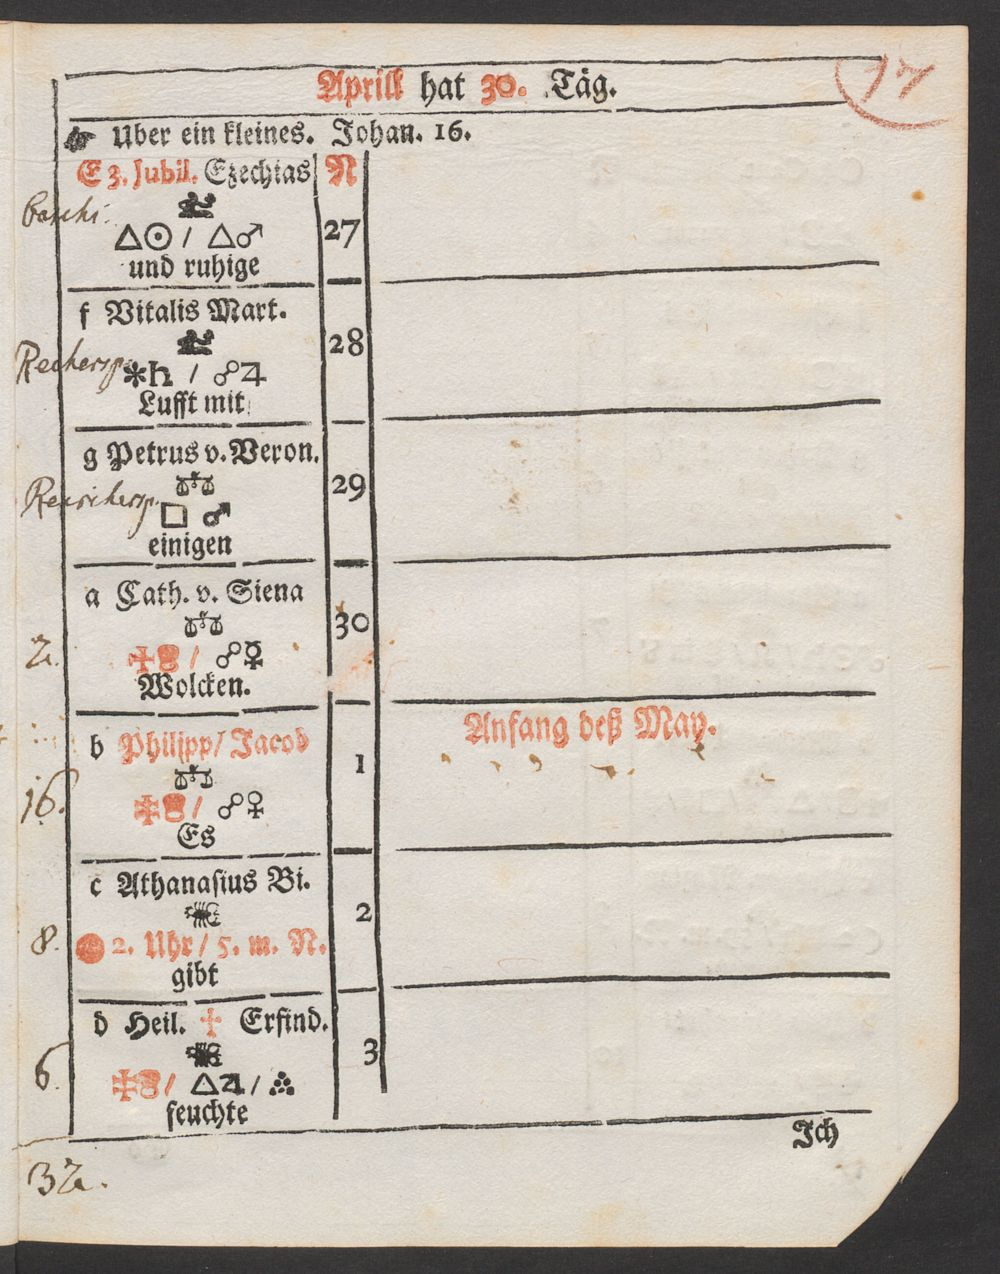 Aprill hat 30. Täg.
17
☛ Uber ein kleines. Johan. 16.
E 3. Jubil. Ezechias N
△☉ / △♂ 27
und ruhige
f Vitalis Mart.
28
✱♄ / ☍♃
Lufft mit
g Petrus v. Veron.
29
□ ♂
einigen
a Cath. v. Siena
30
2.
/ ☍☿
Wolcken.
Anfang deß May.
b Philipp/ Jacob
1
16.
/ ☍♀
Es
c Athanasius Bi.
2
8.
2. Uhr / 5. m. N.
gibt
d Heil. ✝ Erfind.
3
6.
/ △♃ /
feuchte
Ich
32.